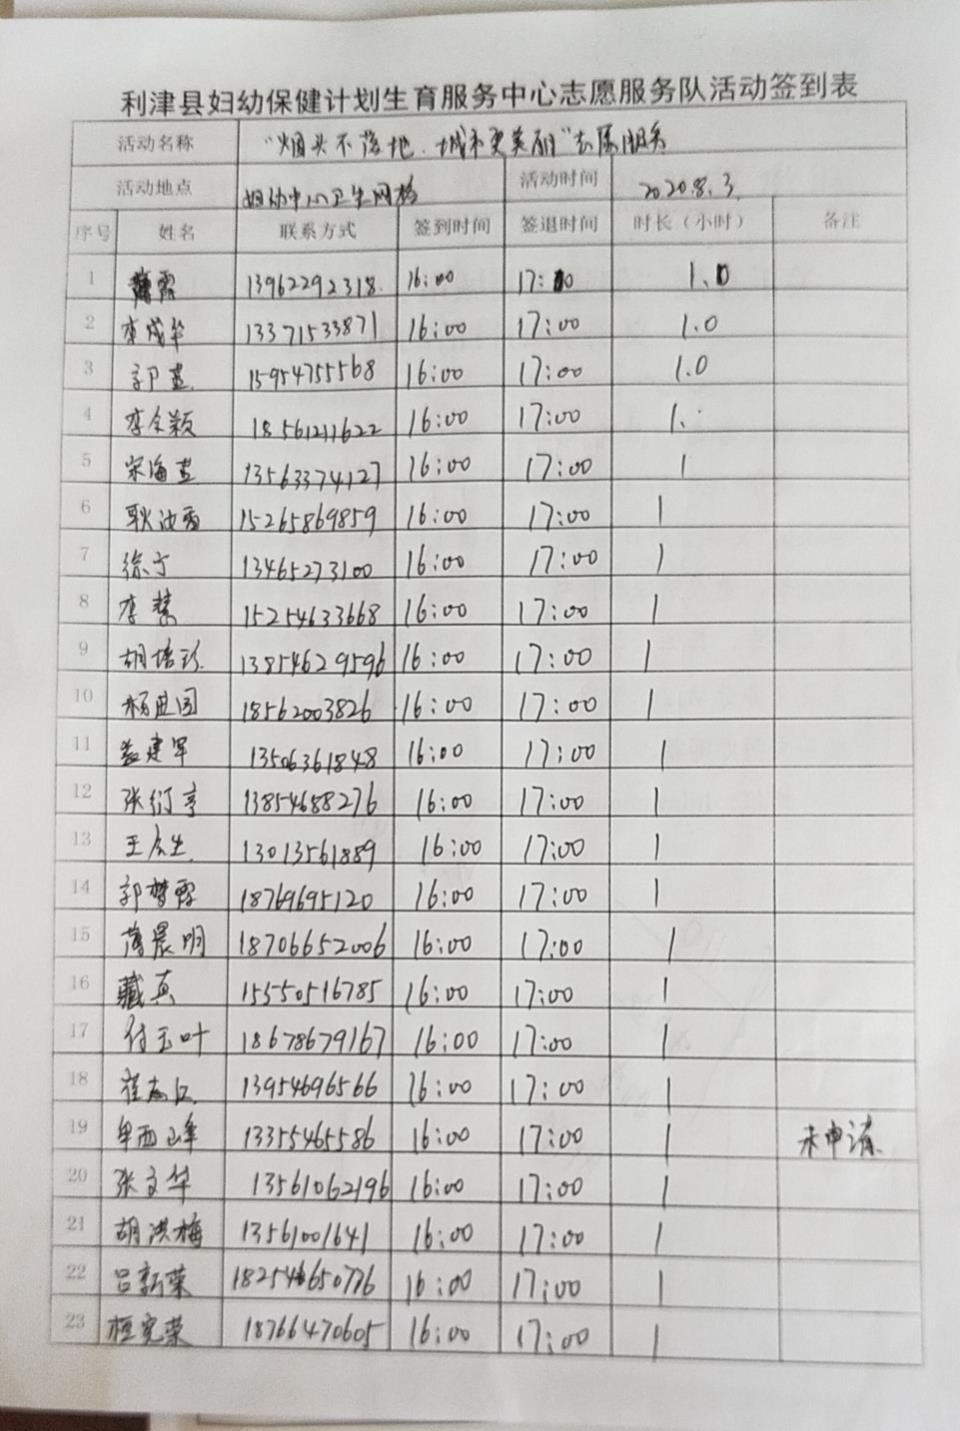 利津县妇幼保健计划生育服务中心志愿服务队活动签到表
活动名称 "烟头不落地、城市更美丽"志愿服务
活动地点 妇幼中心卫生网格 活动时间 2020.8.3.
序号 姓名 联系方式 签到时间 签退时间 时长（小时） 备注
1 13962292318. 16:00 17:00 1.0
2 李成华 13371533871 16:00 17:00 1.0
3 郭英 15954755568 16:00 17:00 1.0
4 李令颖 18561211622 16:00 17:00 1.
5 宋海英 13563374127 16:00 17:00 1
6 15265869859 16:00 17:00 1
7 徐宁 13465273100 16:00 17:00 1
8 李慧 15254633668 16:00 17:00 1
9 胡培珍 13854629596 16:00 17:00 1
10 杨进国 18562003826 16:00 17:00 1
11 孟建军 13506361848 16:00 17:00 1
12 张衍亭 13854688276 16:00 17:00 1
13 13013561889 16:00 17:00 1
14 郭梦霞 18769695120 16:00 17:00 1
15 薄晨明 18706652006 16:00 17:00 1
16 臧真 15550516785 16:00 17:00 1
17 付玉叶 18678679167 16:00 17:00 1
18 13954696566 16:00 17:00 1
19 牟西峰 13355465586 16:00 17:00 1 未申请
20 张文华 13561062196 16:00 17:00 1
21 胡洪梅 13561001641 16:00 17:00 1
22 吕新荣 16:00 17:00 1
23 18766470605 16:00 17:00 1